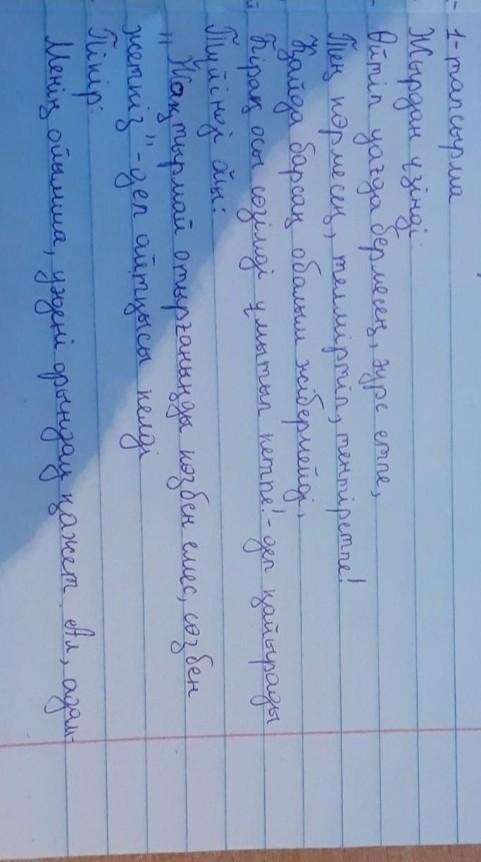 1-тапсырма
Жырдан үзінді:
Өйтіп уағда бермесең, әуре етпе,
Тең көрмесең, телміртіп, тентіретпе!
Қайда барсаң обалым жібермейді,
Бірақ осы сөзімді ұмытып кетпе! - деп қайырады
Түйінді ой:
"Жақтырмай отырғаныңды көзбен емес, сөзбен
жеткіз" - деп айтқысы келді
Пікір:
Менің ойымша, уәдені орындау қажет. Ал, адам-